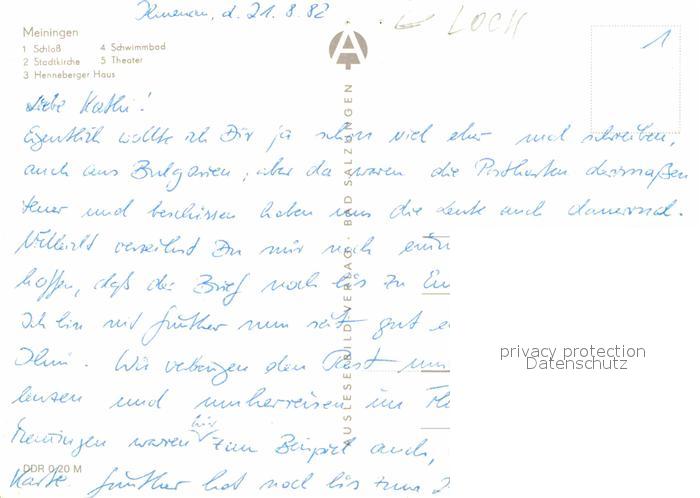 Ilmenau, d. 21.8.82
LOCH
1
Meiningen
1 Schloß 4 Schwimmbad
2 Stadtkirche 5 Theater
3 Henneberger Haus
AUSLESEBILD-VERLAG · BAD SALZUNGEN
Liebe Kathi!
Eigentlich wollte ich Dir ja schon viel eher mal schreiben,
auch aus Bulgarien, aber da waren die Postkarten dermaßen
teuer und beschissen haben uns die Leute auch dauernd.
Vielleicht verzeihst Du mir noch
hoffen, daß der Brief noch bis zu
Ich bin mit Günther nun seit gut
Ilm. Wir verbringen den Rest
und umherreisen im
Meiningen waren wir zum Beispiel auch,
Karte. Günther hat noch bis zum
DDR 0,20 M
privacy protection
Datenschutz